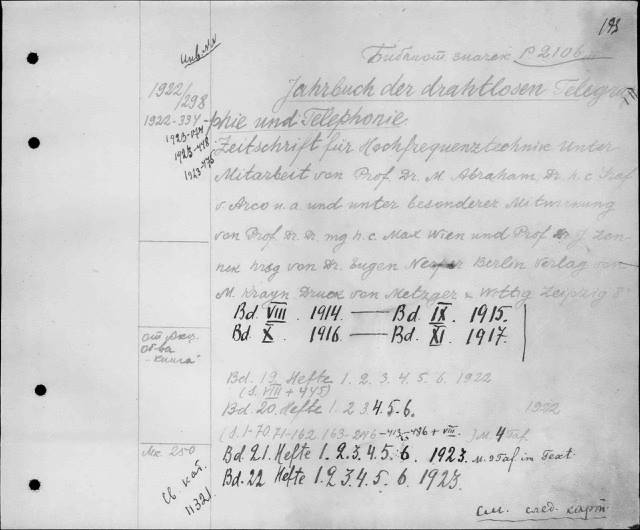 193
Инв. №
Библиот. значек P 2106
1922/298
Jahrbuch der drahtlosen Telegra-
1922-334
phie und Telephonie.
1923-174
1923-448
1923-475
Zeitschrift für Hochfrequenztechnik Unter
Mitarbeit von Prof. Dr. M. Abraham, Dr. h. c. Graf
v Arco u. a. und unter besonderer Mitwirkung
von Prof. Dr. Dr. ing h. c. Max Wien und Prof Dr J. Zen-
neck hrsg von Dr. Eugen Nesper Berlin Verlag von
M. Krayn Druck von Metzger & Wittig Leipzig 8°
Bd. VIII. 1914. — Bd. IX. 1915.
Bd. X. 1916. — Bd. XI. 1917.
от Акц.
Об-ва
"Книга"
Bd. 19. Hefte 1. 2. 3. 4. 5. 6. 1922
(S. VIII + 445)
Bd. 20. Hefte 1. 2. 3. 4. 5. 6. 1922
(S. 1-70 71-162 163-246 -413- -486 + VIII.) M. 4 Taf.
Bd. 21. Hefte 1. 2. 3. 4. 5. 6. 1923. M. 9 Taf. in Text.
Bd. 22 Hefte 1. 2. 3. 4. 5. 6. 1923.
Мк 250
Св. кат.
11321
см. след. карт.